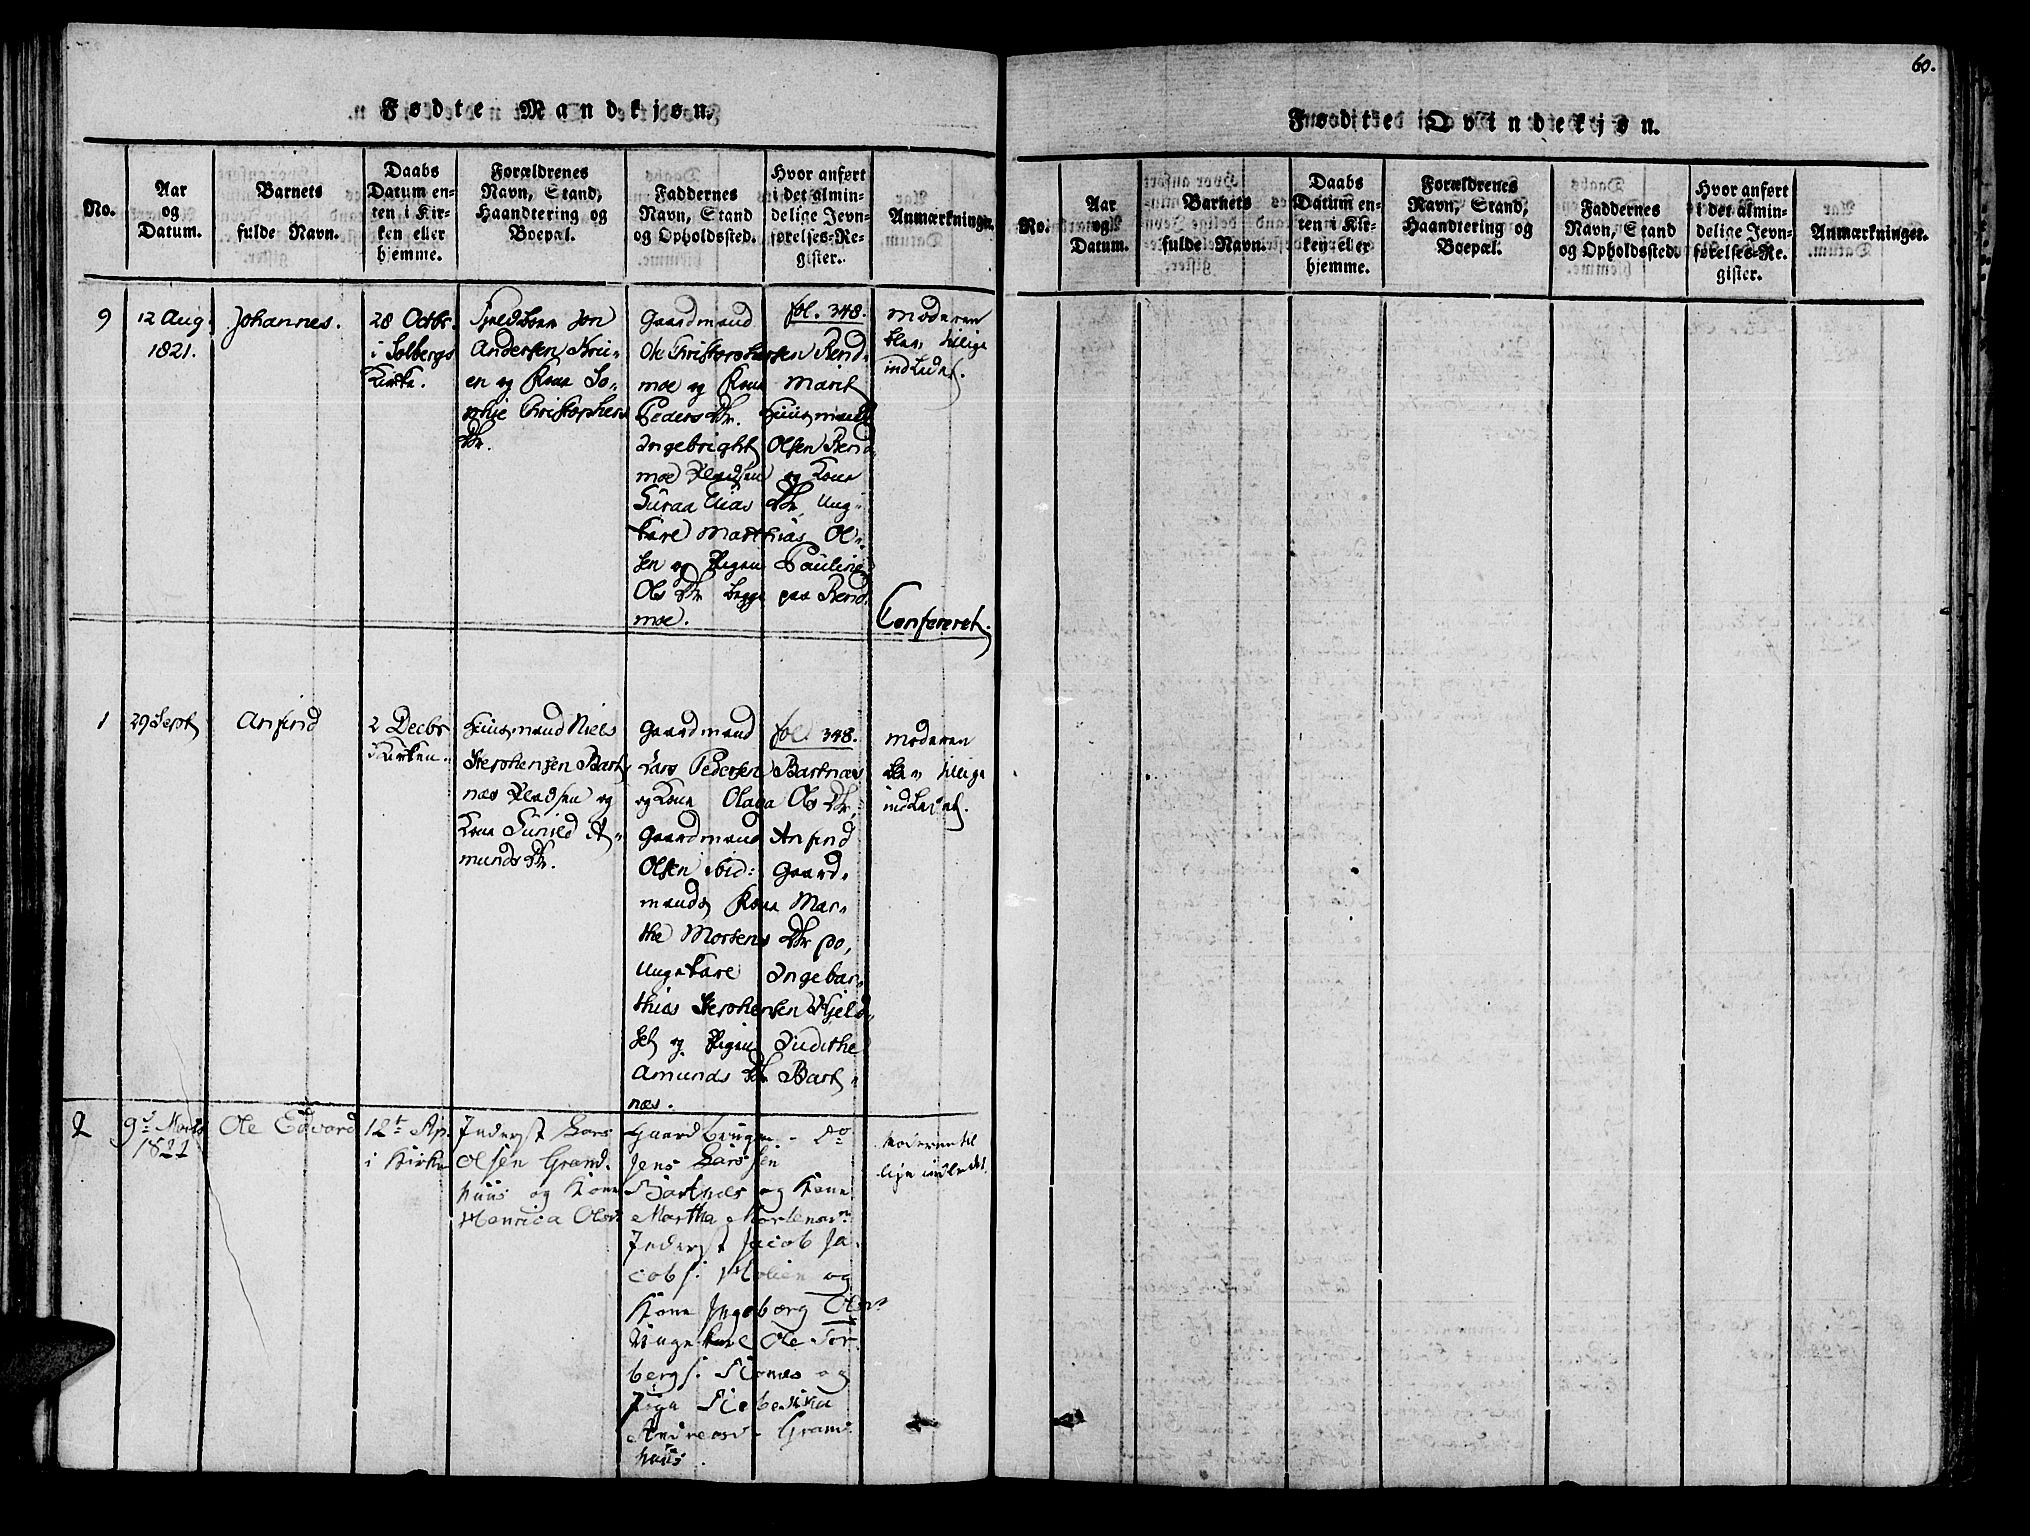 60.
Fødte Mandkjøn.
No.
Aar
og
Datum.
Barnets
fulde Navn.
Daabs
Datum en-
ten i Kir-
ken eller
hjemme.
Forældrenes
Navn, Stand,
Haandtering og
Boepæl.
Faddernes
Navn, Stand
og Opholdssted.
Hvor anført
i det almin-
delige Jevn-
førelses-Re-
gister.
Anmærkninger.
9
12 Aug.
1821.
Johannes.
28 Octbr.
i Solbergs
Kirke.
Jon
Andersen
en og Kone So-
phie Christophers
Dtr.
Gaardmand
Ole Christophersen Rend-
moe og Kone Marit
Peders Dtr. Huusmand
Ingebright Olsen Rend-
moe Pladsen og Kone
Elias Dtr, Ung-
karl Matthias Ol-
sen og Pigen Pauline
Ols Dtr begge paa Rend-
moe.
fol. 348.
Moderen
blev tillige
indledet.
Confereret.
1
29 Sept
Anfind
2 Decbr
i Kirken.
Huusmand Niels
Stephensen Bart-
næs Pladsen og
Kone A-
munds Dtr.
Gaardmand
Lars Pedersen Bartnæs
og Kone Olava Ols Dtr,
Gaardmand Anfind
Olsen ibid: Gaard-
mands Kone Mar-
the Mortens Dtr do,
Ungekarl Ingebar-
thias Stephensen Hjeld-
set og Pigen Judithe
Amunds Dtr Bart-
næs.
fol 348.
Moderen
blev tillige
indledet.
2
9d Marts
1821
Ole Edvard
12t Ap.
i Kirke
Inderst Lars
Olsen Grand-
huus og Kone
Henrica Olsd
Gaardbruger
Jens Larssen
Bartnes og Kone
Martha Mortensd
Inderst Jacob Ja-
cobs. Molien og
Kone Ingeborg Olsd
Ungekarl Ole Tor-
bergs. og
Piga Rebekka
Andreasd Grand-
huus.
do
Moderen til
lige indledet.
Fødte Qvindekjøn.
No.
Aar
og
Datum.
Barnets
fulde Navn.
Daabs
Datum en-
ten i Kir-
ken eller
hjemme.
Forældrenes
Navn, Stand,
Haandtering og
Boepæl.
Faddernes
Navn, Stand
og Opholdssted.
Hvor anført
i det almin-
delige Jevn-
førelses-Re-
gister.
Anmærkninger.